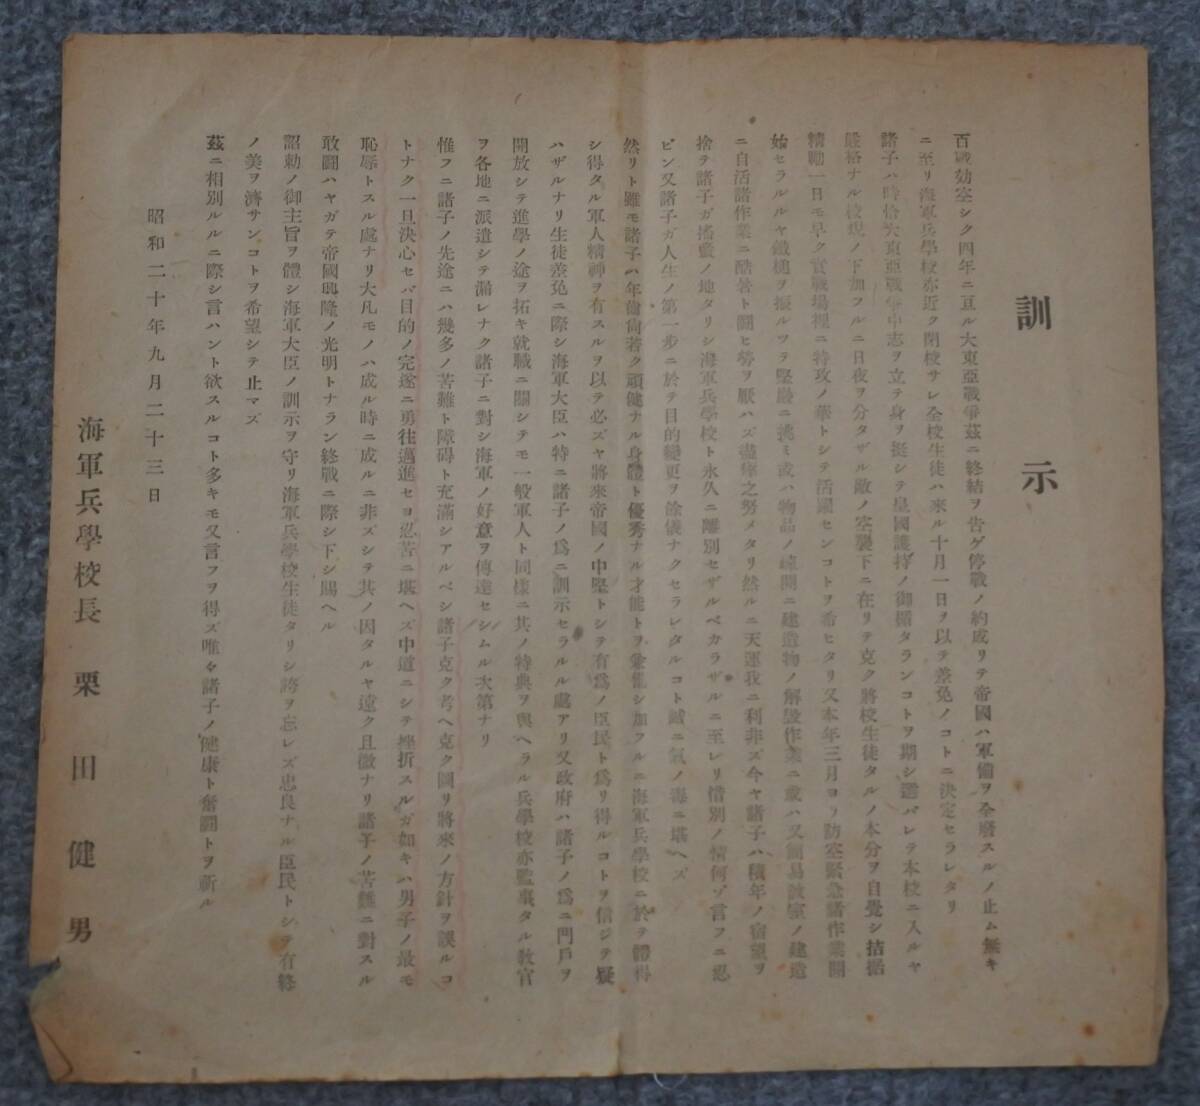 訓示
百戰効空シク四年ニ亘ル大東亞戰爭茲ニ終結ヲ告ゲ停戰ノ約成リテ帝國ハ軍備ヲ全廢スルノ止ム無キ
ニ至リ海軍兵學校亦近ク閉校サレ全校生徒ハ來ル十月一日ヲ以テ差免ノコトニ決定セラレタリ
諸子ハ時恰大東亞戰爭中志ヲ立テ身ヲ挺シテ皇國護持ノ御楯タランコトヲ期シ選バレテ本校ニ入ルヤ
嚴格ナル校規ノ下加フルニ日夜ヲ分タザル敵ノ空襲下ニ在リテ克ク將校生徒タルノ本分ヲ自覺シ拮据
精勵一日モ早ク實戰場裡ニ特攻ノ華トシテ活躍センコトヲ希ヒタリ又本年三月ヨリ防空緊急諸作業開
始セラルルヤ鐵槌ヲ振ルツテ堅巖ニ挑ミ或ハ物品ノ疎開ニ建造物ノ解毀作業ニ或ハ又簡易敎室ノ建造
ニ自活諸作業ニ酷暑ト鬪ヒ勞ヲ厭ハズ盡瘁之努メタリ然ルニ天運我ニ利非ズ今ヤ諸子ハ積年ノ宿望ヲ
捨テ諸子ガ搖籃ノ地タリシ海軍兵學校ト永久ニ離別セザルベカラザルニ至レリ惜別ノ情何ゾ言フニ忍
ビン又諸子ガ人生ノ第一步ニ於テ目的變更ヲ餘儀ナクセラレタルコト誠ニ氣ノ毒ニ堪ヘズ
然リト雖モ諸子ハ年齒尙若ク頑健ナル身體ト優秀ナル才能トヲ兼備シ加フルニ海軍兵學校ニ於テ體得
シ得タル軍人精神ヲ有スルヲ以テ必ズヤ將來帝國ノ中堅トシテ有爲ノ臣民ト爲リ得ルコトヲ信ジテ疑
ハザルナリ生徒差免ニ際シ海軍大臣ハ特ニ諸子ノ爲ニ訓示セラルル處アリ又政府ハ諸子ノ爲ニ門戶ヲ
開放シテ進學ノ途ヲ拓キ就職ニ關シテモ一般軍人ト同樣ニ其ノ特典ヲ與ヘラル兵學校亦監事タル敎官
ヲ各地ニ派遣シテ漏レナク諸子ニ對シ海軍ノ好意ヲ傳達セシムル次第ナリ
惟フニ諸子ノ先途ニハ幾多ノ苦難ト障碍ト充滿シアルベシ諸子克ク考ヘ克ク圖リ將來ノ方針ヲ誤ルコ
トナク一旦決心セバ目的ノ完遂ニ勇往邁進セヨ忍苦ニ堪ヘズ中道ニシテ挫折スルガ如キハ男子ノ最モ
恥辱トスル處ナリ大凡モノハ成ル時ニ成ルニ非ズシテ其ノ因タルヤ遠ク且微ナリ諸子ノ苦難ニ對スル
敢鬪ハヤガテ帝國興隆ノ光明トナラン終戰ニ際シ下シ賜ヘル
詔勅ノ御主旨ヲ體シ海軍大臣ノ訓示ヲ守リ海軍兵學校生徒タリシ誇ヲ忘レズ忠良ナル臣民トシテ有終
ノ美ヲ濟サンコトヲ希望シテ止マズ
茲ニ相別ルルニ際シ言ハント欲スルコト多キモ又言フヲ得ズ唯々諸子ノ健康ト奮鬪トヲ祈ル
昭和二十年九月二十三日
海軍兵學校長 栗田健男